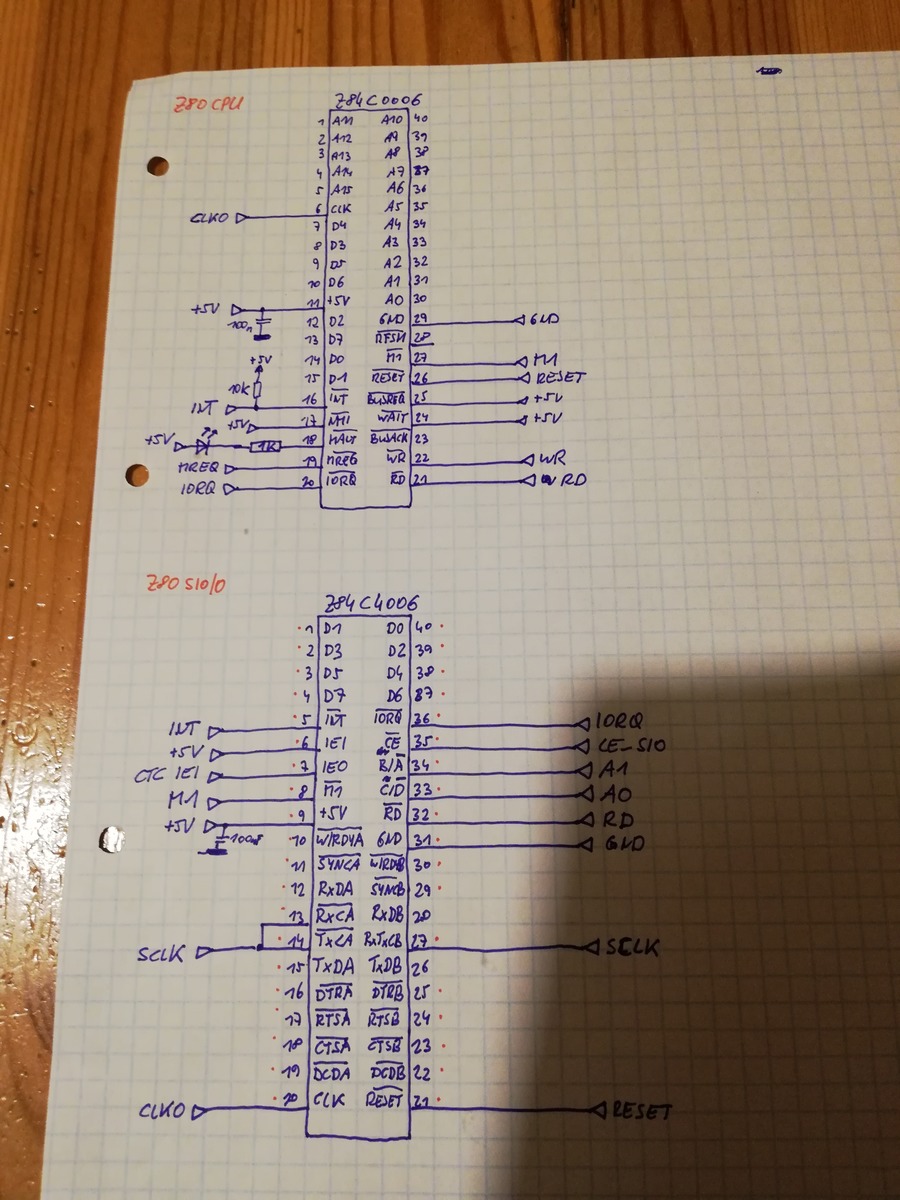 Z80 CPU
Z84C0006
1 A11 A10 40
2 A12 A9 39
3 A13 A8 38
4 A14 A7 37
5 A15 A6 36
CLKO 6 CLK A5 35
7 D4 A4 34
8 D3 A3 33
9 D5 A2 32
10 D6 A1 31
+5V 11 +5V A0 30
100n 12 D2 GND 29 GND
13 D7 RFSH 28
+5V 14 D0 M1 27 M1
10K 15 D1 RESET 26 RESET
INT 16 INT BUSREQ 25 +5V
+5V 17 NMI WAIT 24 +5V
+5V 1K 18 HALT BUSACK 23
MREQ 19 MREQ WR 22 WR
IORQ 20 IORQ RD 21 RD
Z80 SIO/0
Z84C4006
1 D1 D0 40
2 D3 D2 39
3 D5 D4 38
4 D7 D6 37
INT 5 INT IORQ 36 IORQ
+5V 6 IEI CE 35 CE_SIO
CTC IEI 7 IEO B/A 34 A1
M1 8 M1 C/D 33 A0
+5V 9 +5V RD 32 RD
10 W/RDYA GND 31 GND
11 SYNCA W/RDYB 30
12 RxDA SYNCB 29
13 RxCA RxDB 28
SCLK 14 TxCA RxTxCB 27 SCLK
15 TxDA TxDB 26
16 DTRA DTRB 25
17 RTSA RTSB 24
18 CTSA CTSB 23
19 DCDA DCDB 22
CLKO 20 CLK RESET 21 RESET